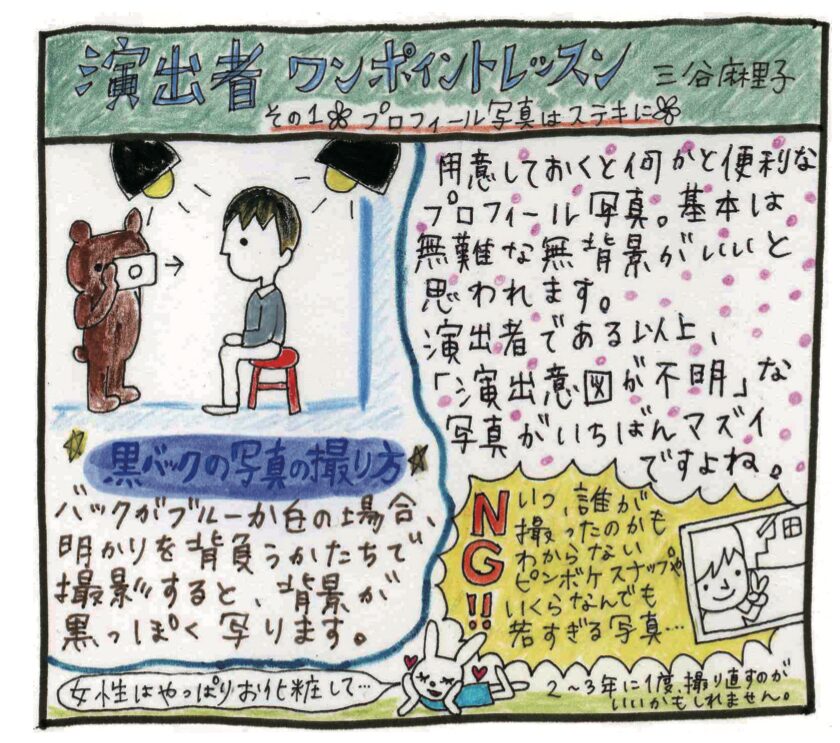 演出者 ワンポイントレッスン 三谷麻里子
その1 プロフィール写真はステキに
用意しておくと何かと便利な
プロフィール写真。基本は
無難な無背景がいいと
思われます。
演出者である以上、
「演出意図が不明」な
写真がいちばんマズイ
ですよね。
黒バックの写真の撮り方
バックがブルーか白の場合、
明かりを背負うかたちで
撮影すると、背景が
黒っぽく写ります。
NG!!
いつ、誰が
撮ったのかも
わからない
ピンボケスナップや
いくらなんでも
若すぎる写真…
女性はやっぱりお化粧して…
2~3年に1度、撮り直すのが
いいかもしれません。